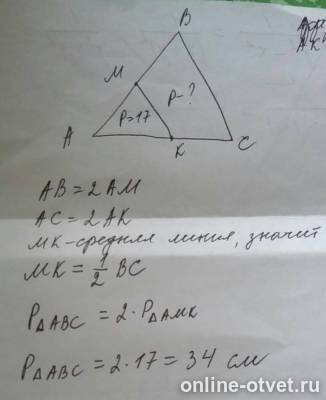 B
M
P-?
P=17
A
K
C
AB=2AM
AC=2AK
MK-средняя линия, значит
MK=1/2 BC
P△ABC = 2·P△AMK
P△ABC = 2·17 = 34 см
online-otvet.ru